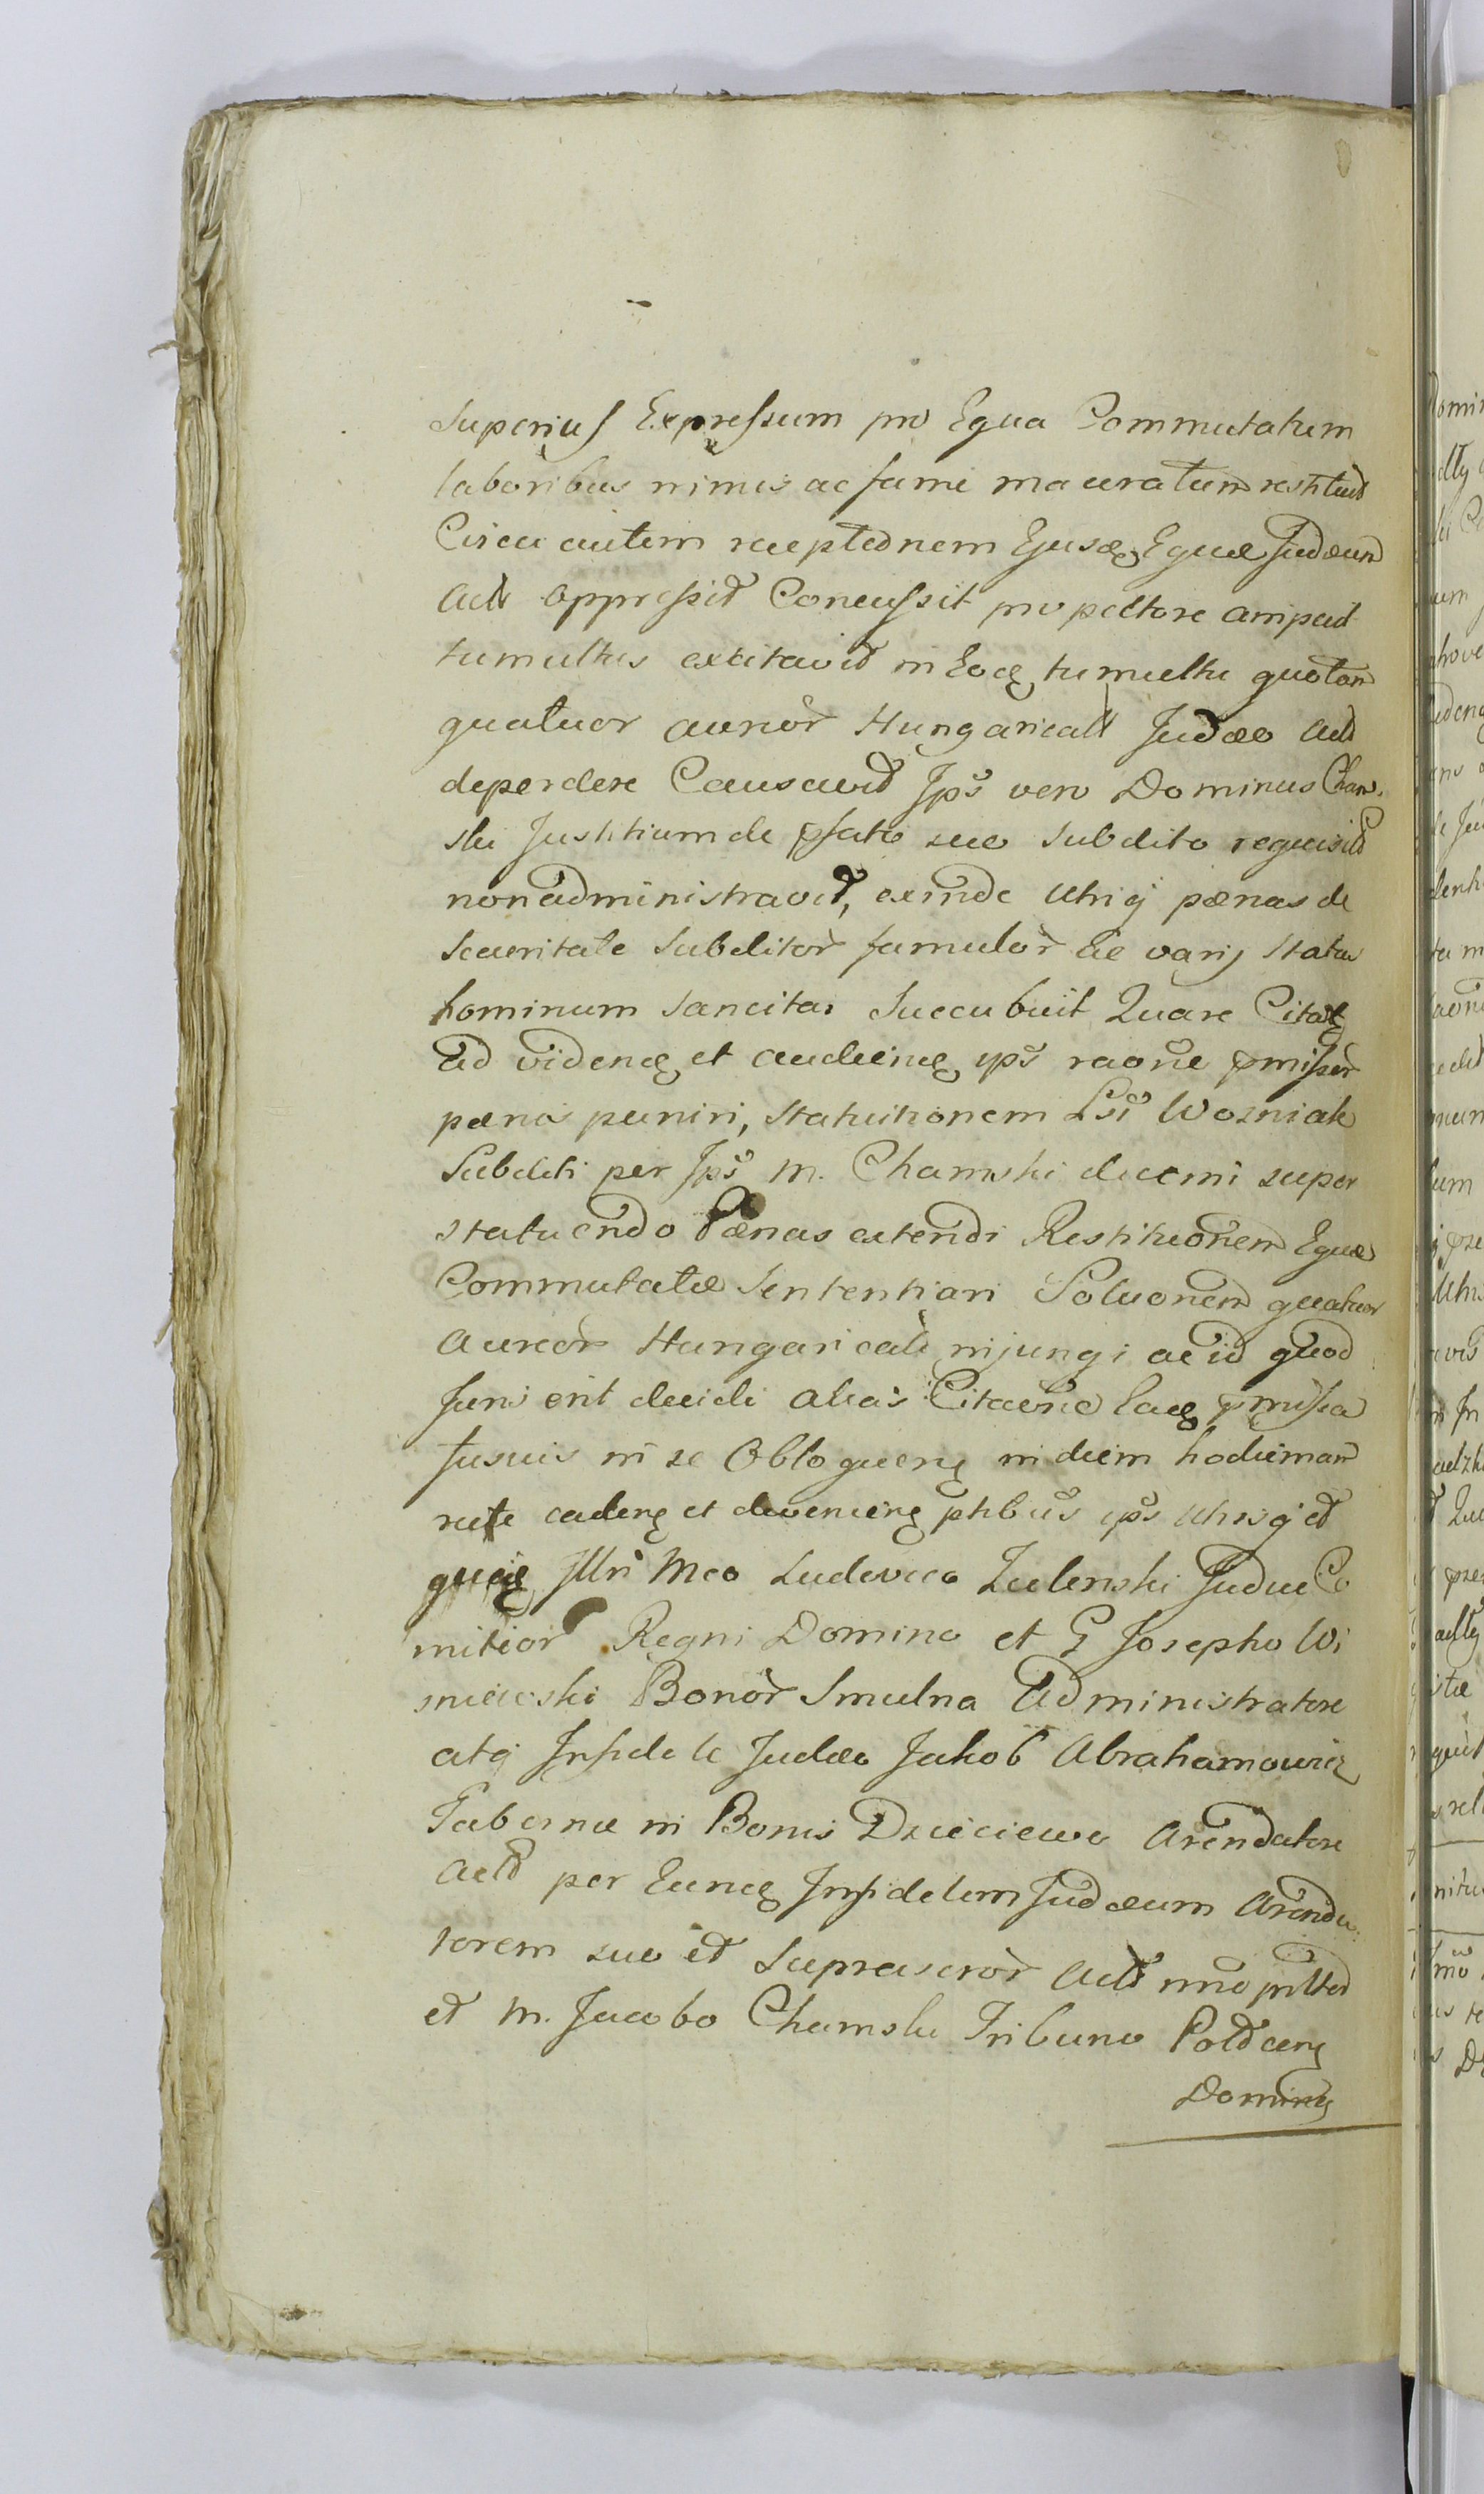 Superius Expressum pro Equa Commutatum
laboribus nimis ac fame maceratum restituit
Circa autem receptionem Ejusdq Equæ Judæum
Act oppressit Concussit pro pectore aripuit
tumultus excitavit in Eodq tumultu
quatuor aureor Hungarical Judæo Act
deperdere Causavit Ips vero Dominus Cham
ski Justitiam de pfato suo Subdito requisit
non administravit, exinde utriq pænas de
Securitate Subditor famulor ac varij Status
hominum Sancitas Succubuit Quare Citat
ad videndq et audiendq ips raone pmissor
pænis puniri, Statuitionem Wozniak
Subditi per Ips M. Chamski decerni super
statuendo Pænas extendi Restitucionem Equæ
Commutatæ Sententiari Soluonem quatuor
Aureor Hungarical injungi ac id quod
Juris erit decidi alias Citaone eadq pmissa
fusius in se Obloquenq in diem hodiernam
rite cadenq et devenienq ptibus ips utrisq et
quidq Illri Mco Ludovico Zielenski Judice Co
mitior Regni Domino et G Josepho Wi
sniewski Bonor Smulna Administratore
atq Infidele Judæo Jakob Abrahamowicz
Tabernæ in Bonis Dzieciewo Arendatore
Act per Eundq Infidelem Judæum Arenda
torem suo et Suprascror Act nne
et M. Jacobo Chamski Tribuno
Dominq